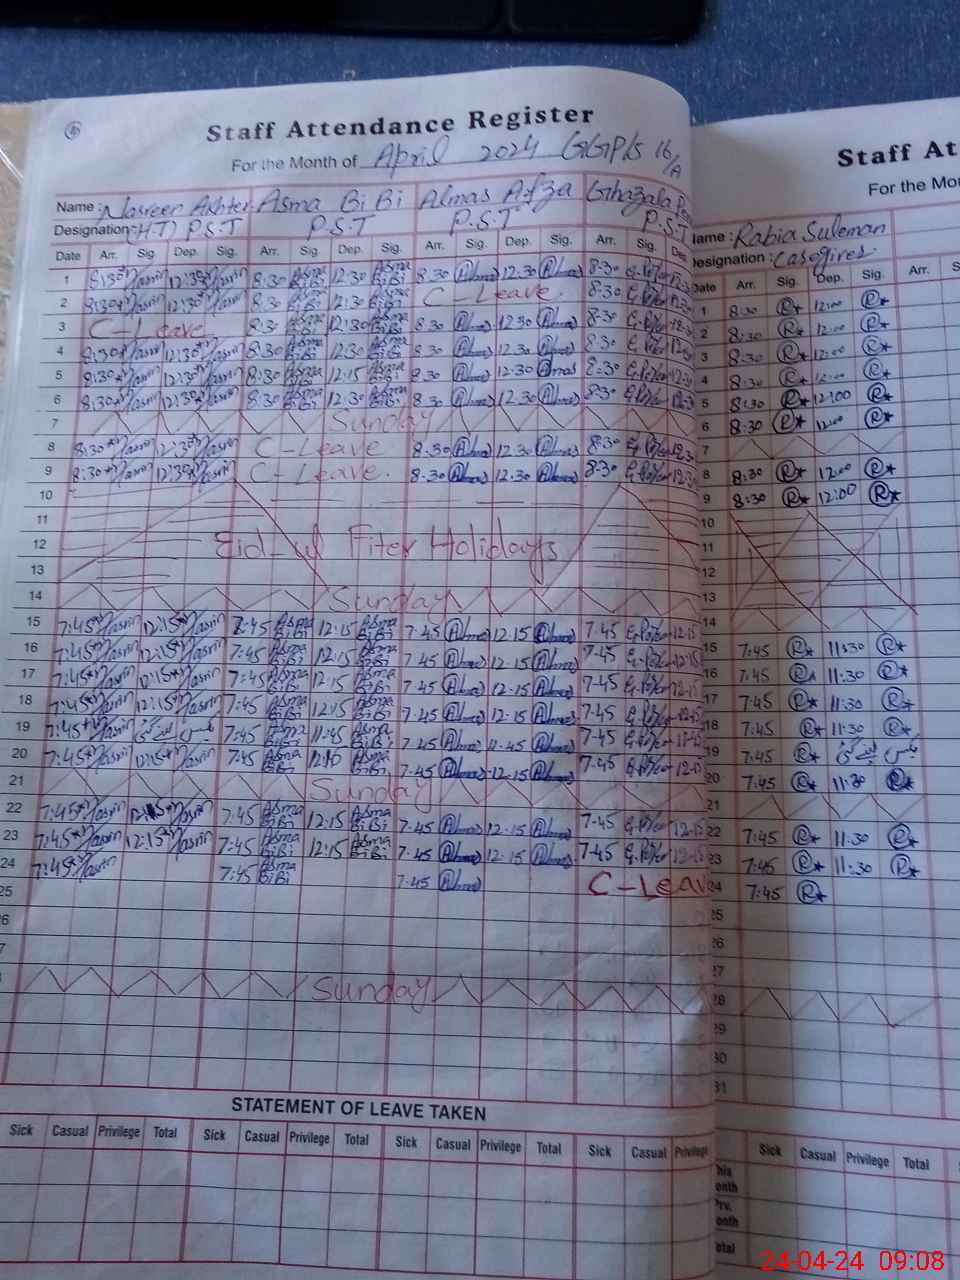 Staff Attendance Register
For the Month of April 2024 GGP/S 16/A
Name: Nasreen Akhter Asma BiBi Almas Afza Ghazala
Designation: (H.T) P.S.T P.S.T P.S.T P.S.T
Date Arr. Sig. Dep. Sig. Arr. Sig. Dep. Sig. Arr. Sig. Dep. Sig. Arr. Sig. Dep
1 8:30 Nasrin 12:30 Nasrin 8:30 Asma BiBi 12:30 Asma BiBi 8:30 Almas 12:30 Almas 8:30
2 8:30 Nasrin 12:30 Nasrin 8:30 Asma BiBi 12:30 Asma BiBi C-Leave. 8:30
3 C-Leave 8:30 Asma BiBi 12:30 Asma BiBi 8:30 Almas 12:30 Almas 8:30
4 8:30 Nasrin 12:30 Nasrin 8:30 Asma BiBi 12:30 Asma BiBi 8:30 Almas 12:30 Almas 8:30
5 8:30 Nasrin 12:30 Nasrin 8:30 Asma BiBi 12:15 Asma BiBi 8:30 Almas 12:30 Almas 8:30
6 8:30 Nasrin 12:30 Nasrin 8:30 Asma BiBi 12:30 Asma BiBi 8:30 Almas 12:30 Almas 8:30
7 Sunday
8 8:30 Nasrin 12:30 Nasrin C-Leave 8:30 Almas 12:30 Almas 8:30
9 8:30 Nasrin 12:30 Nasrin C-Leave. 8:30 Almas 12:30 Almas 8:30
10
11
12 Eid-ul Fiter Holidays
13
14 Sunday
15 7:45 Nasrin 12:15 Nasrin 7:45 Asma BiBi 12:15 Asma BiBi 7:45 Almas 12:15 Almas 7:45 12:15
16 7:45 Nasrin 12:15 Nasrin 7:45 Asma BiBi 12:15 Asma BiBi 7:45 Almas 12:15 Almas 7:45 12:15
17 7:45 Nasrin 12:15 Nasrin 7:45 Asma BiBi 12:15 Asma BiBi 7:45 Almas 12:15 Almas 7:45 12:15
18 7:45 Nasrin 12:15 Nasrin 7:45 Asma BiBi 12:15 Asma BiBi 7:45 Almas 12:15 Almas 7:45 12:15
19 7:45 Nasrin 7:45 Asma BiBi 11:45 Asma BiBi 7:45 Almas 11:45 Almas 7:45 11:45
20 7:45 Nasrin 12:15 Nasrin 7:45 Asma BiBi Asma BiBi 7:45 Almas 12:15 Almas 7:45 12:15
21 Sunday
22 7:45 Nasrin 12:15 Nasrin 7:45 Asma BiBi 12:15 Asma BiBi 7:45 Almas 12:15 Almas 7:45 12:15
23 7:45 Nasrin 12:15 Nasrin 7:45 Asma BiBi 12:15 Asma BiBi 7:45 Almas 12:15 Almas 7:45 12:15
24 7:45 Nasrin 7:45 Asma BiBi 7:45 Almas C-Leave
25
Sunday
STATEMENT OF LEAVE TAKEN
Sick Casual Privilege Total Sick Casual Privilege Total Sick Casual Privilege Total Sick Casual Privilege
Staff At
For the Mon
Name: Rabia Suleman
Designation:
Date Arr. Sig. Dep. Sig. Arr. S
1 8:30 R 12:00 R
2 8:30 R 12:00 R
3 8:30 R 12:00 R
4 8:30 R 12:00 R
5 8:30 R 12:00 R
6 8:30 R 12:00 R
7
8 8:30 R 12:00 R
9 8:30 R 12:00 R
10
11
12
13
14
15 7:45 R 11:30 R
16 7:45 R 11:30 R
17 7:45 R 11:30 R
18 7:45 R 11:30 R
19 7:45 R
20 7:45 R 11:30 R
21
22 7:45 R 11:30 R
23 7:45 R 11:30 R
24 7:45 R
25
26
27
28
29
30
31
Sick Casual Privilege Total
This
onth
Prv.
onth
otal
24-04-24 09:08